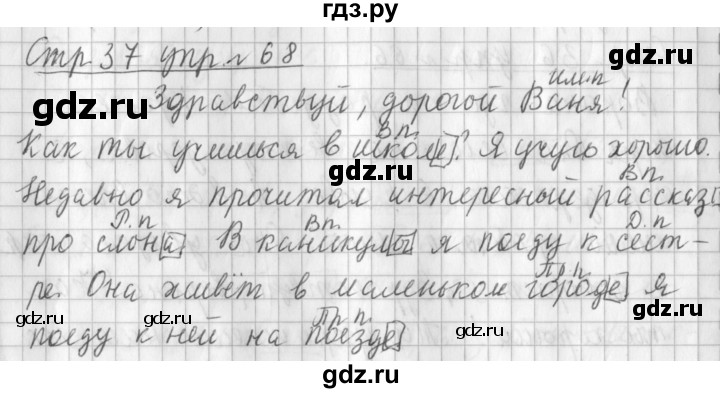 гдз.ру
Стр 37 упр. № 68
gdz.ru gdz.ru
им.п
Здравствуй, дорогой Ваня!
В п.
Как ты учишься в школе? Я учусь хорошо.
gdz.ru
В п.
Недавно я прочитал интересный рассказ
Р. п Вп. Д. п
про слона В каникулы я поеду к сест-
gdz.ru gdz.ru
Пр п.
ре. Она живёт в маленьком городе я
gdz.ru gdz.ru
Пр. п.
поеду к ней на поезде
gdz.ru gdz.ru
gdz.ru